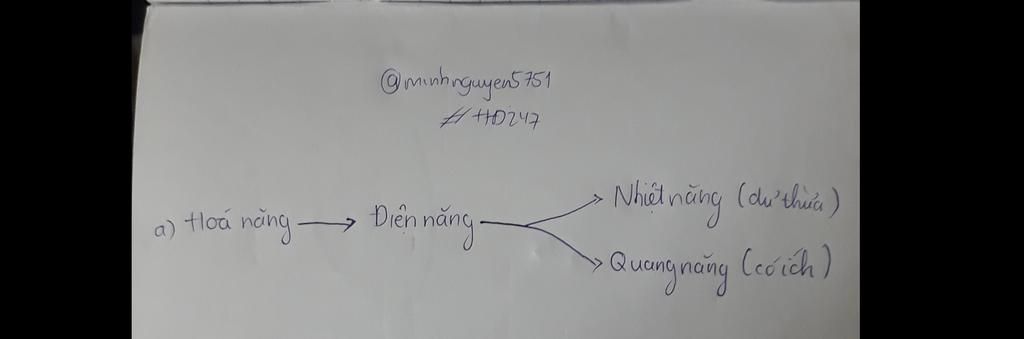 @minhnguyen5751
#HD247
a) Hoá năng → Điện năng → Nhiệt năng (dư thừa)
→ Quang năng (có ích)